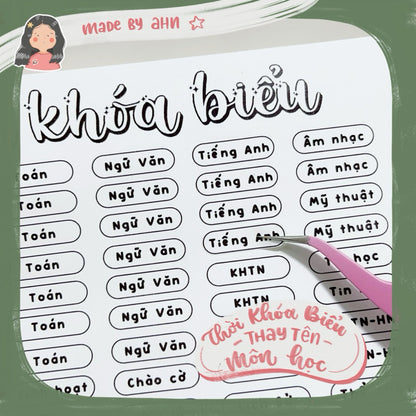 MADE BY AHN
khóa biểu
oán Ngữ Văn Tiếng Anh Âm nhạc
Toán Ngữ Văn Tiếng Anh Âm nhạc
Toán Ngữ Văn Tiếng Anh Mỹ thuật
Toán Ngữ Văn Tiếng Anh Mỹ thuật
Toán Ngữ Văn KHTN học
Toán Ngữ Văn KHTN Tin
Toán Ngữ Văn TN-HN
hoạt Chào cờ
Thời Khóa Biểu
THAY TÊN
Môn học